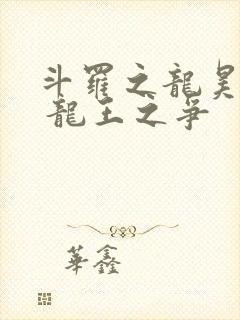 斗羅之龍昊
龍王之爭
華鑫